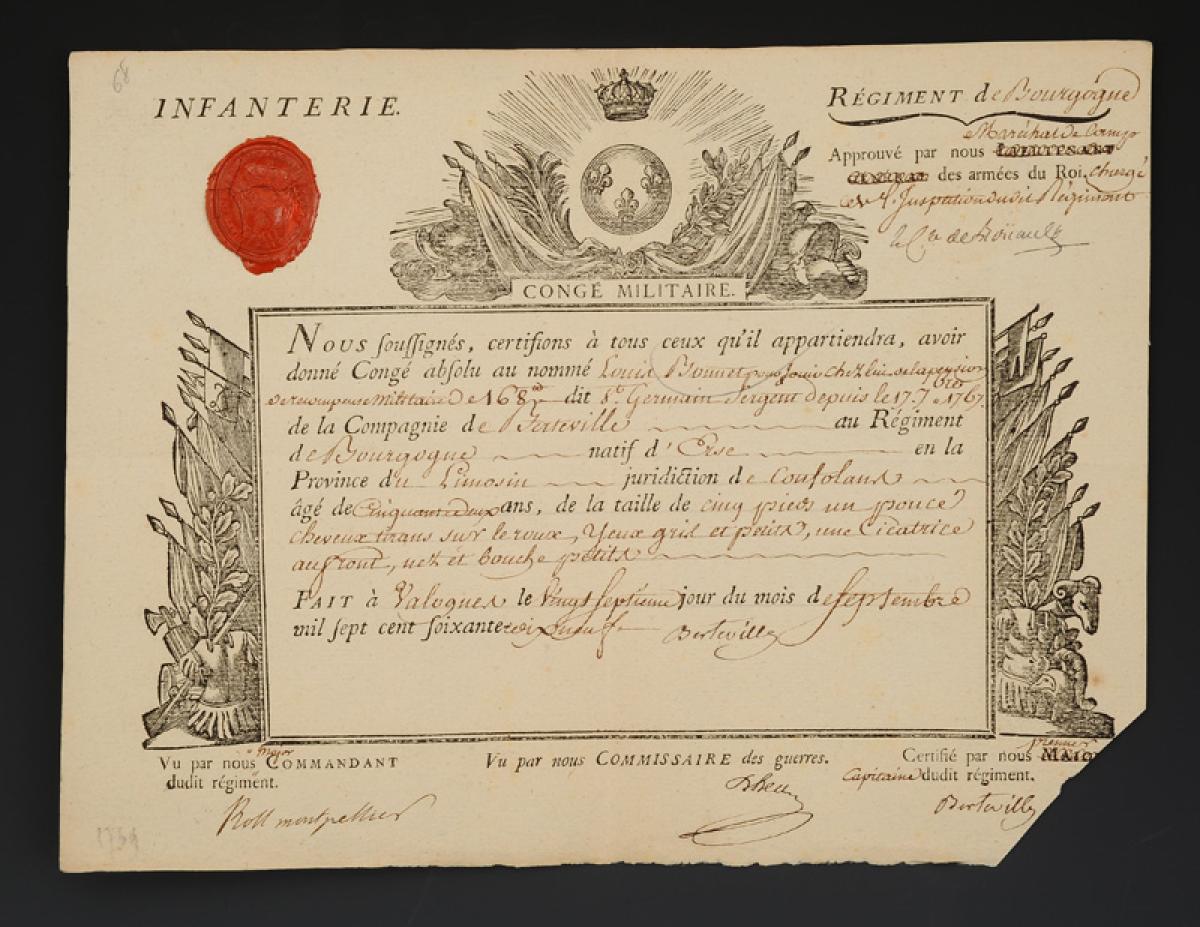 68
INFANTERIE.
RÉGIMENT de Bourgogne
Maréchal de Camp
Approuvé par nous LIEUTENANT
GÉNÉRAL des armées du Roi, chargé
de l'Inspection dudit Régiment
CONGÉ MILITAIRE.
Nous souſſignés, certifions à tous ceux qu'il appartiendra, avoir
donné Congé absolu au nommé Louis Bonnet pour Jouir chez lui de la pension
de recompense Militaire de 168 dit St. Germain Sergent depuis le 17. 7 1767.
de la Compagnie de Berteville au Régiment
de Bourgogne natif d' Esse en la
Province du Limosin juridiction de Confolans
âgé de Cinquante deux ans, de la taille de cinq pieds un pouce
cheveux tirans sur le roux, Yeux gris et petits, une Cicatrice
au front, nez et bouche petits
FAIT à Valognes le Vingt Septieme jour du mois de Septembre
mil ſept cent ſoixante dix neuf Berteville
major
Vu par nous COMMANDANT
dudit régiment.
Vu par nous COMMISSAIRE des guerres.
premier
Certifié par nous MAJOR
Capitaine dudit régiment.
Roll montpellier
Berteville